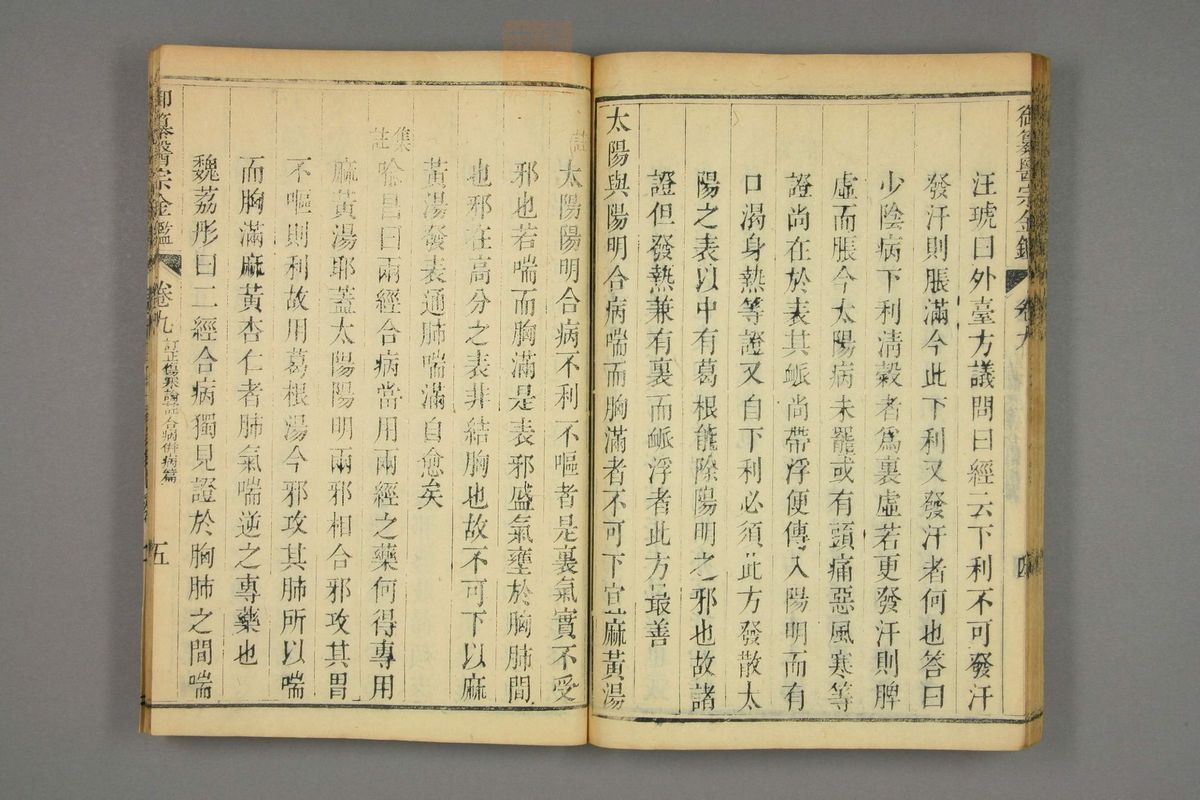 御纂醫宗金鑑 卷九 四
汪琥曰外臺方議問曰經云下利不可發汗
發汗則脹滿今此下利又發汗者何也答曰
少陰病下利清穀者爲裏虛若更發汗則脾
虛而脹今太陽病未罷或有頭痛惡風寒等
證尚在於表其脈尚帶浮便傳入陽明而有
口渴身熱等證又自下利必須此方發散太
陽之表以中有葛根能除陽明之邪也故諸
證但發熱兼有裏而脈浮者此方最善
太陽與陽明合病喘而胸滿者不可下宜麻黃湯
註太陽陽明合病不利不嘔者是裏氣實不受
邪也若喘而胸滿是表邪盛氣壅於胸肺間
也邪在高分之表非結胸也故不可下以麻
黃湯發表通肺喘滿自愈矣
集註喻昌曰兩經合病當用兩經之藥何得專用
麻黃湯耶蓋太陽陽明兩邪相合邪攻其胃
不嘔則利故用葛根湯今邪攻其肺所以喘
而胸滿麻黃杏仁者肺氣喘逆之專藥也
魏荔彤曰二經合病獨見證於胸肺之間喘
御纂醫宗金鑑 卷九 訂正傷寒論註合病併病篇 五